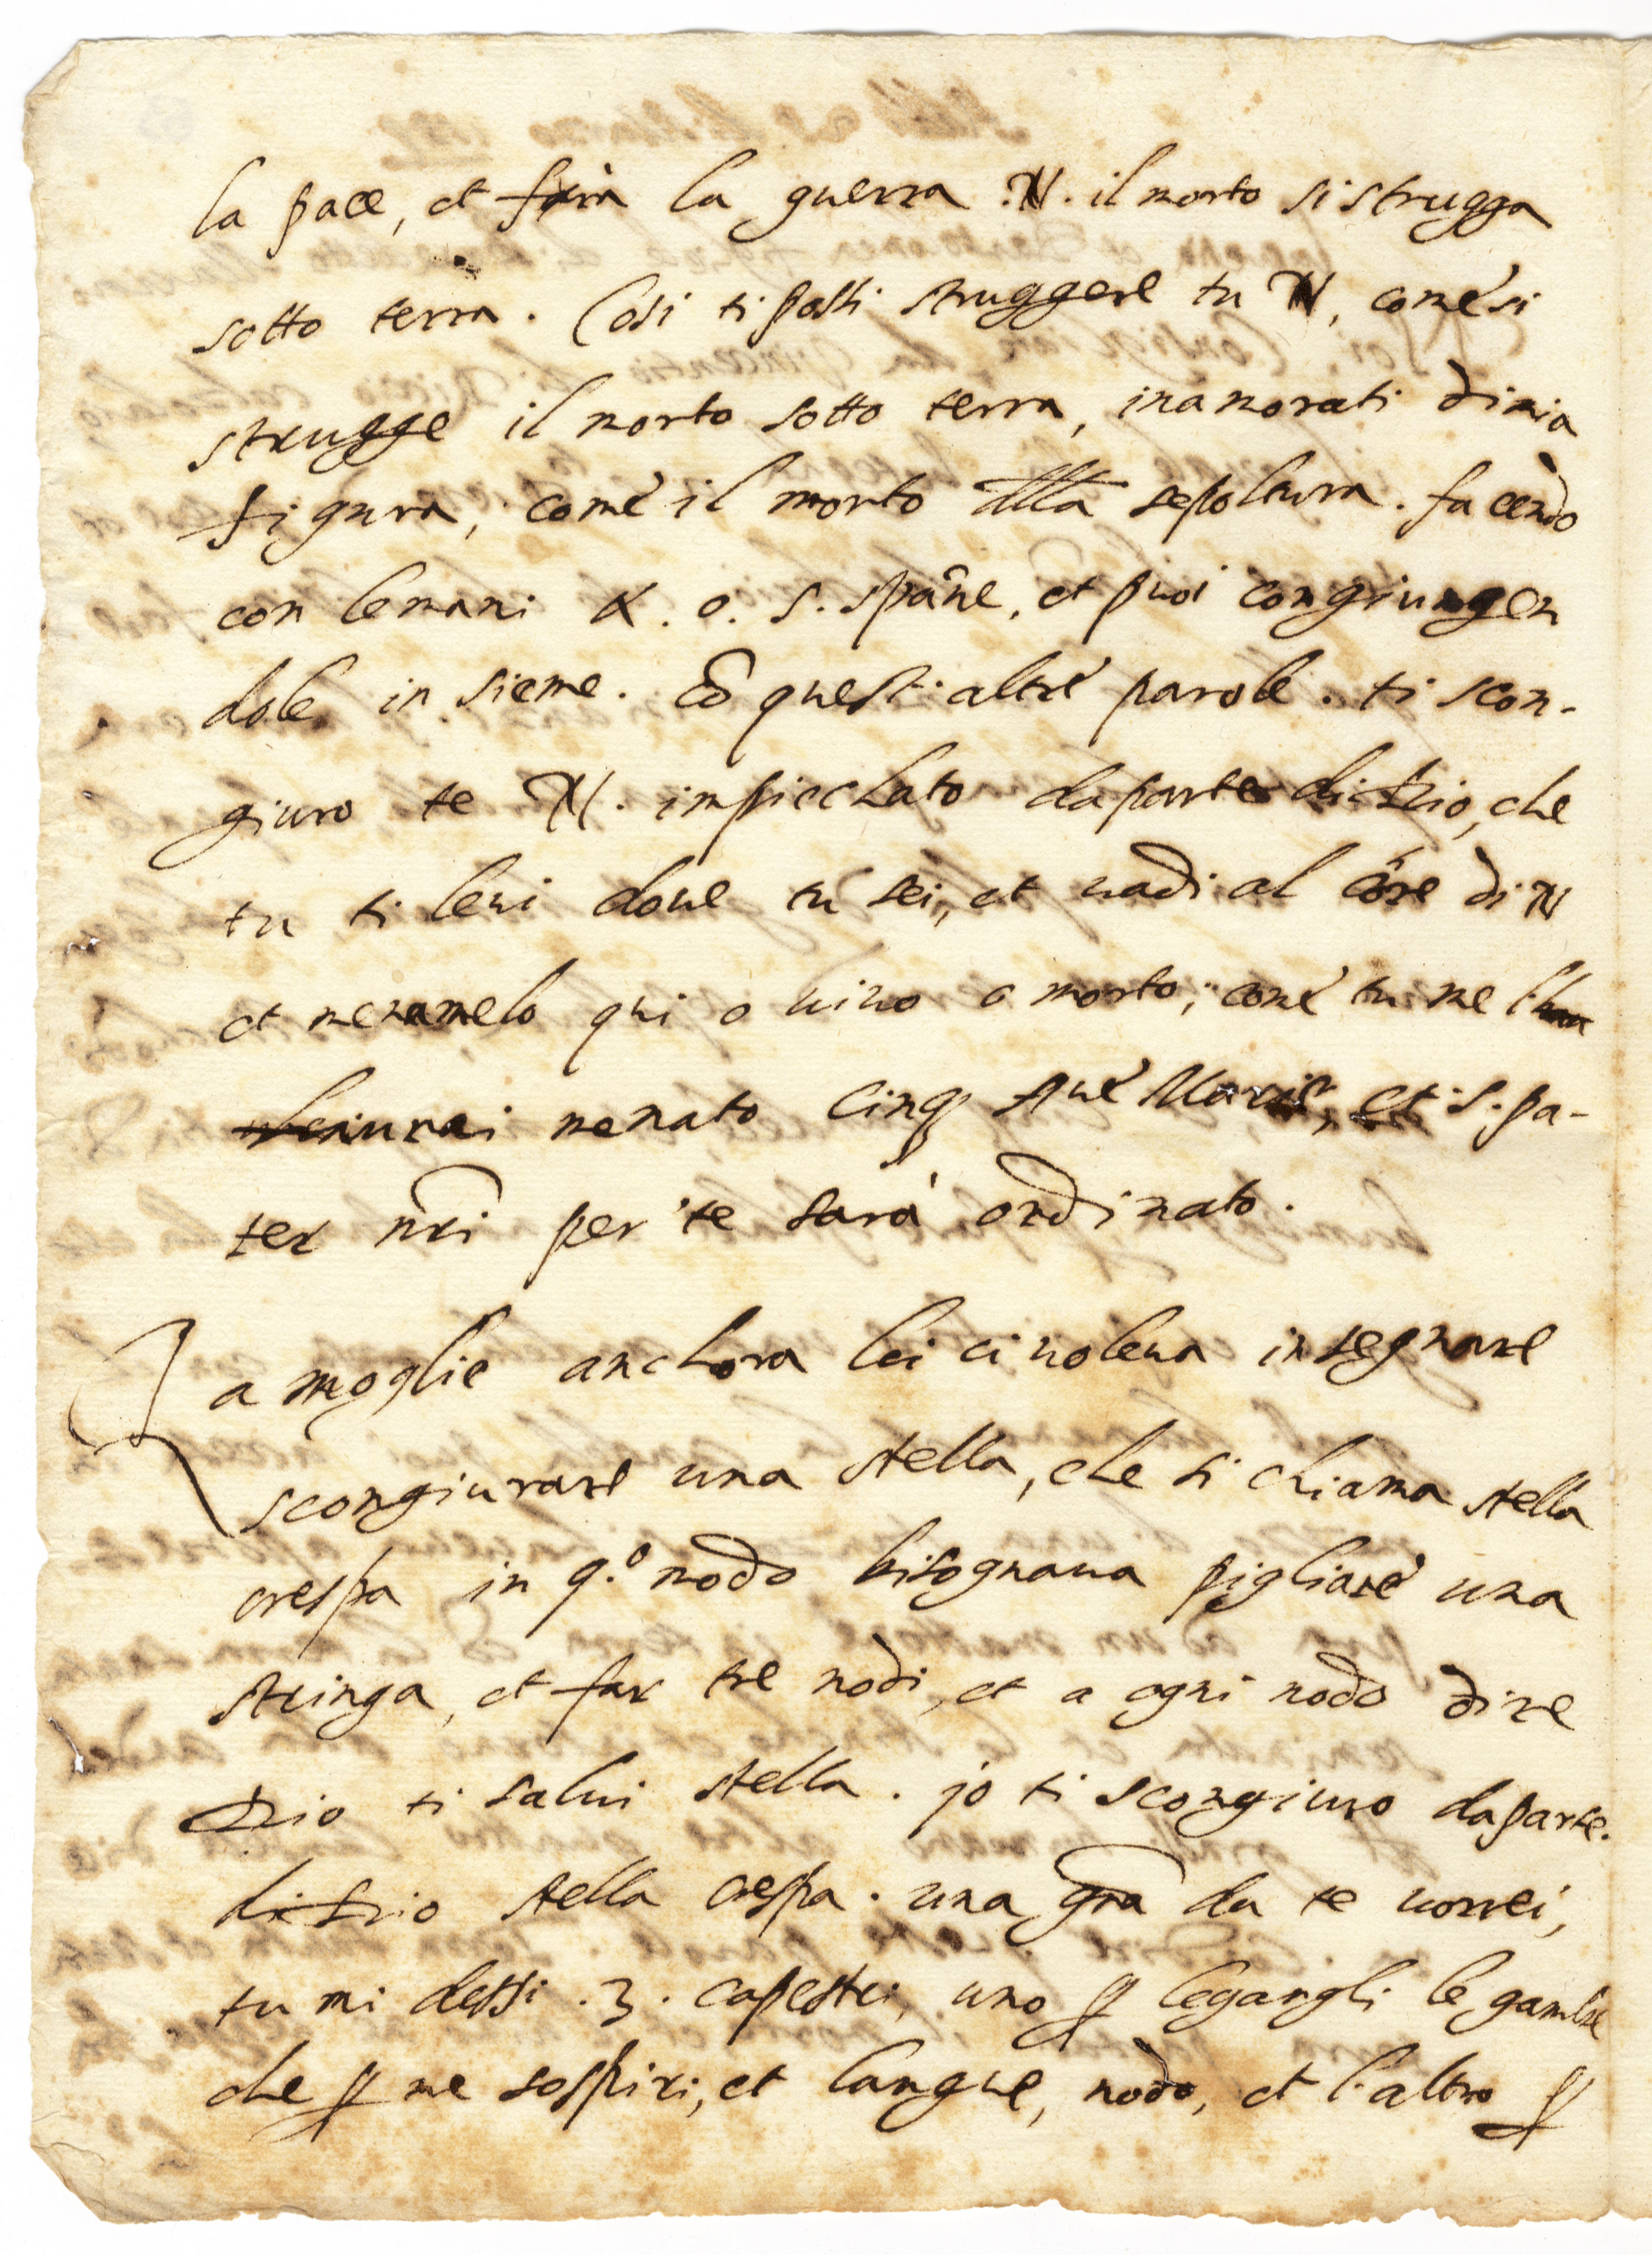 la pace, et farà la guerra .N. il morto si strugga
sotto terra. Cosi ti possi struggere tu N, comè si
strugge il morto sotto terra, inamorati di mia
figura, comè il morto della sepoltura. facendo
con le mani X. o. s. spãne, et puoi congiungen
dole in sieme. cõ quest'altrè parole. ti scon-
giuro te N. impicchato da parte di Dio, che
tu ti levi dove tu sei, et vadi al core di N
et menamelo qui o vivo o morto; comè tu me l'
menato Cinq Avè Marie, et s. pa-
ter nri per te sarà ordinato.
La moglie anchora lei ci voleva insegnare
scongiurare una stella, che si chiama stella
crespa in q.º modo bisognava pigliarè una
stringa, et far tre nodi, et a ogni nodo dire
Dio ti salvi stella. jo ti scongiuro da parte.
di Dio stella crespa. una gra da te vorrei,
tu mi dessi .3. capestri, uno ꝑ legargli le gambe
che ꝑ me sospiri, et langue, nodo, et l'altro ꝑ